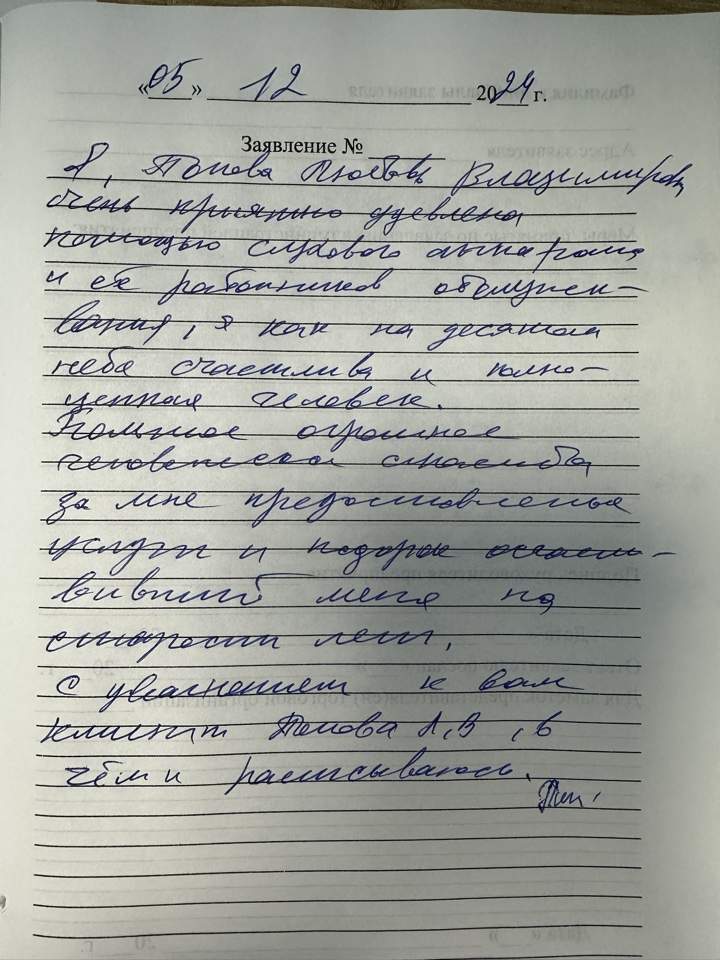 «05» 12 2024 г.
Заявление №
Я, Попова Любовь Владимировна
очень приятно удевлена
помощью слухового аппарата
и её работников обслужи-
вания, я как на десятом
небе счастлива и полно-
ценная человек.
Большое огромное
человеческая спасиба
за мне предоставленые
услуги и подарок осчаст-
вивший меня на
старости лет.
С уважением к вам
клиент Попова Л,В , в
чём и расписываюсь.